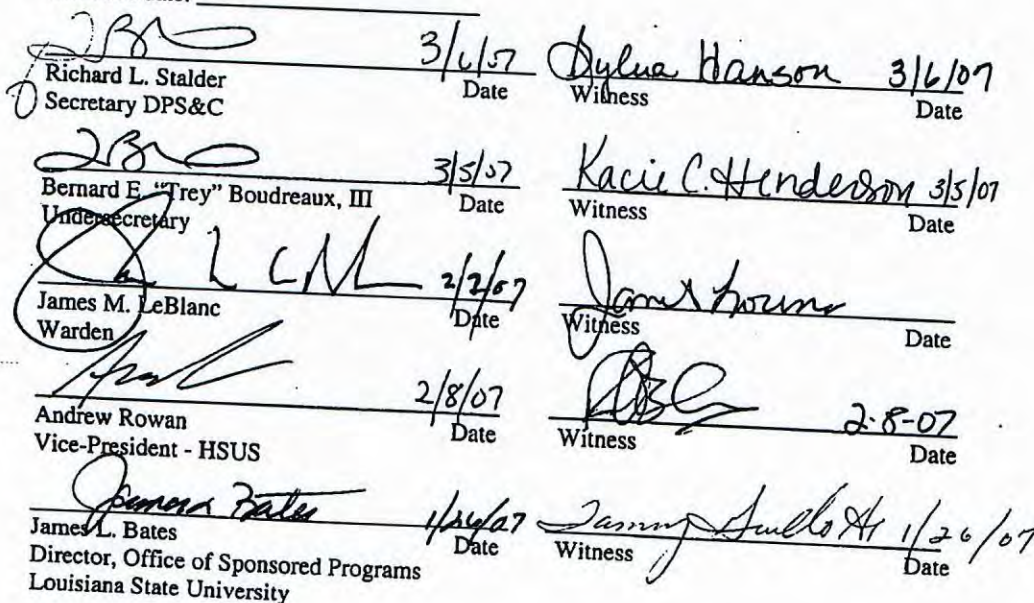 3/6/07 Sylvia Hanson 3/6/07
Richard L. Stalder Date Witness Date
Secretary DPS&C
3/5/07 Kacie C. Henderson 3/5/07
Bernard E. "Trey" Boudreaux, III Date Witness Date
Undersecretary
2/2/07
James M. LeBlanc Date Witness Date
Warden
2/8/07 2-8-07
Andrew Rowan Date Witness Date
Vice-President - HSUS
James L. Bates 1/26/07 Tammy 1/26/07
James L. Bates Date Witness Date
Director, Office of Sponsored Programs
Louisiana State University